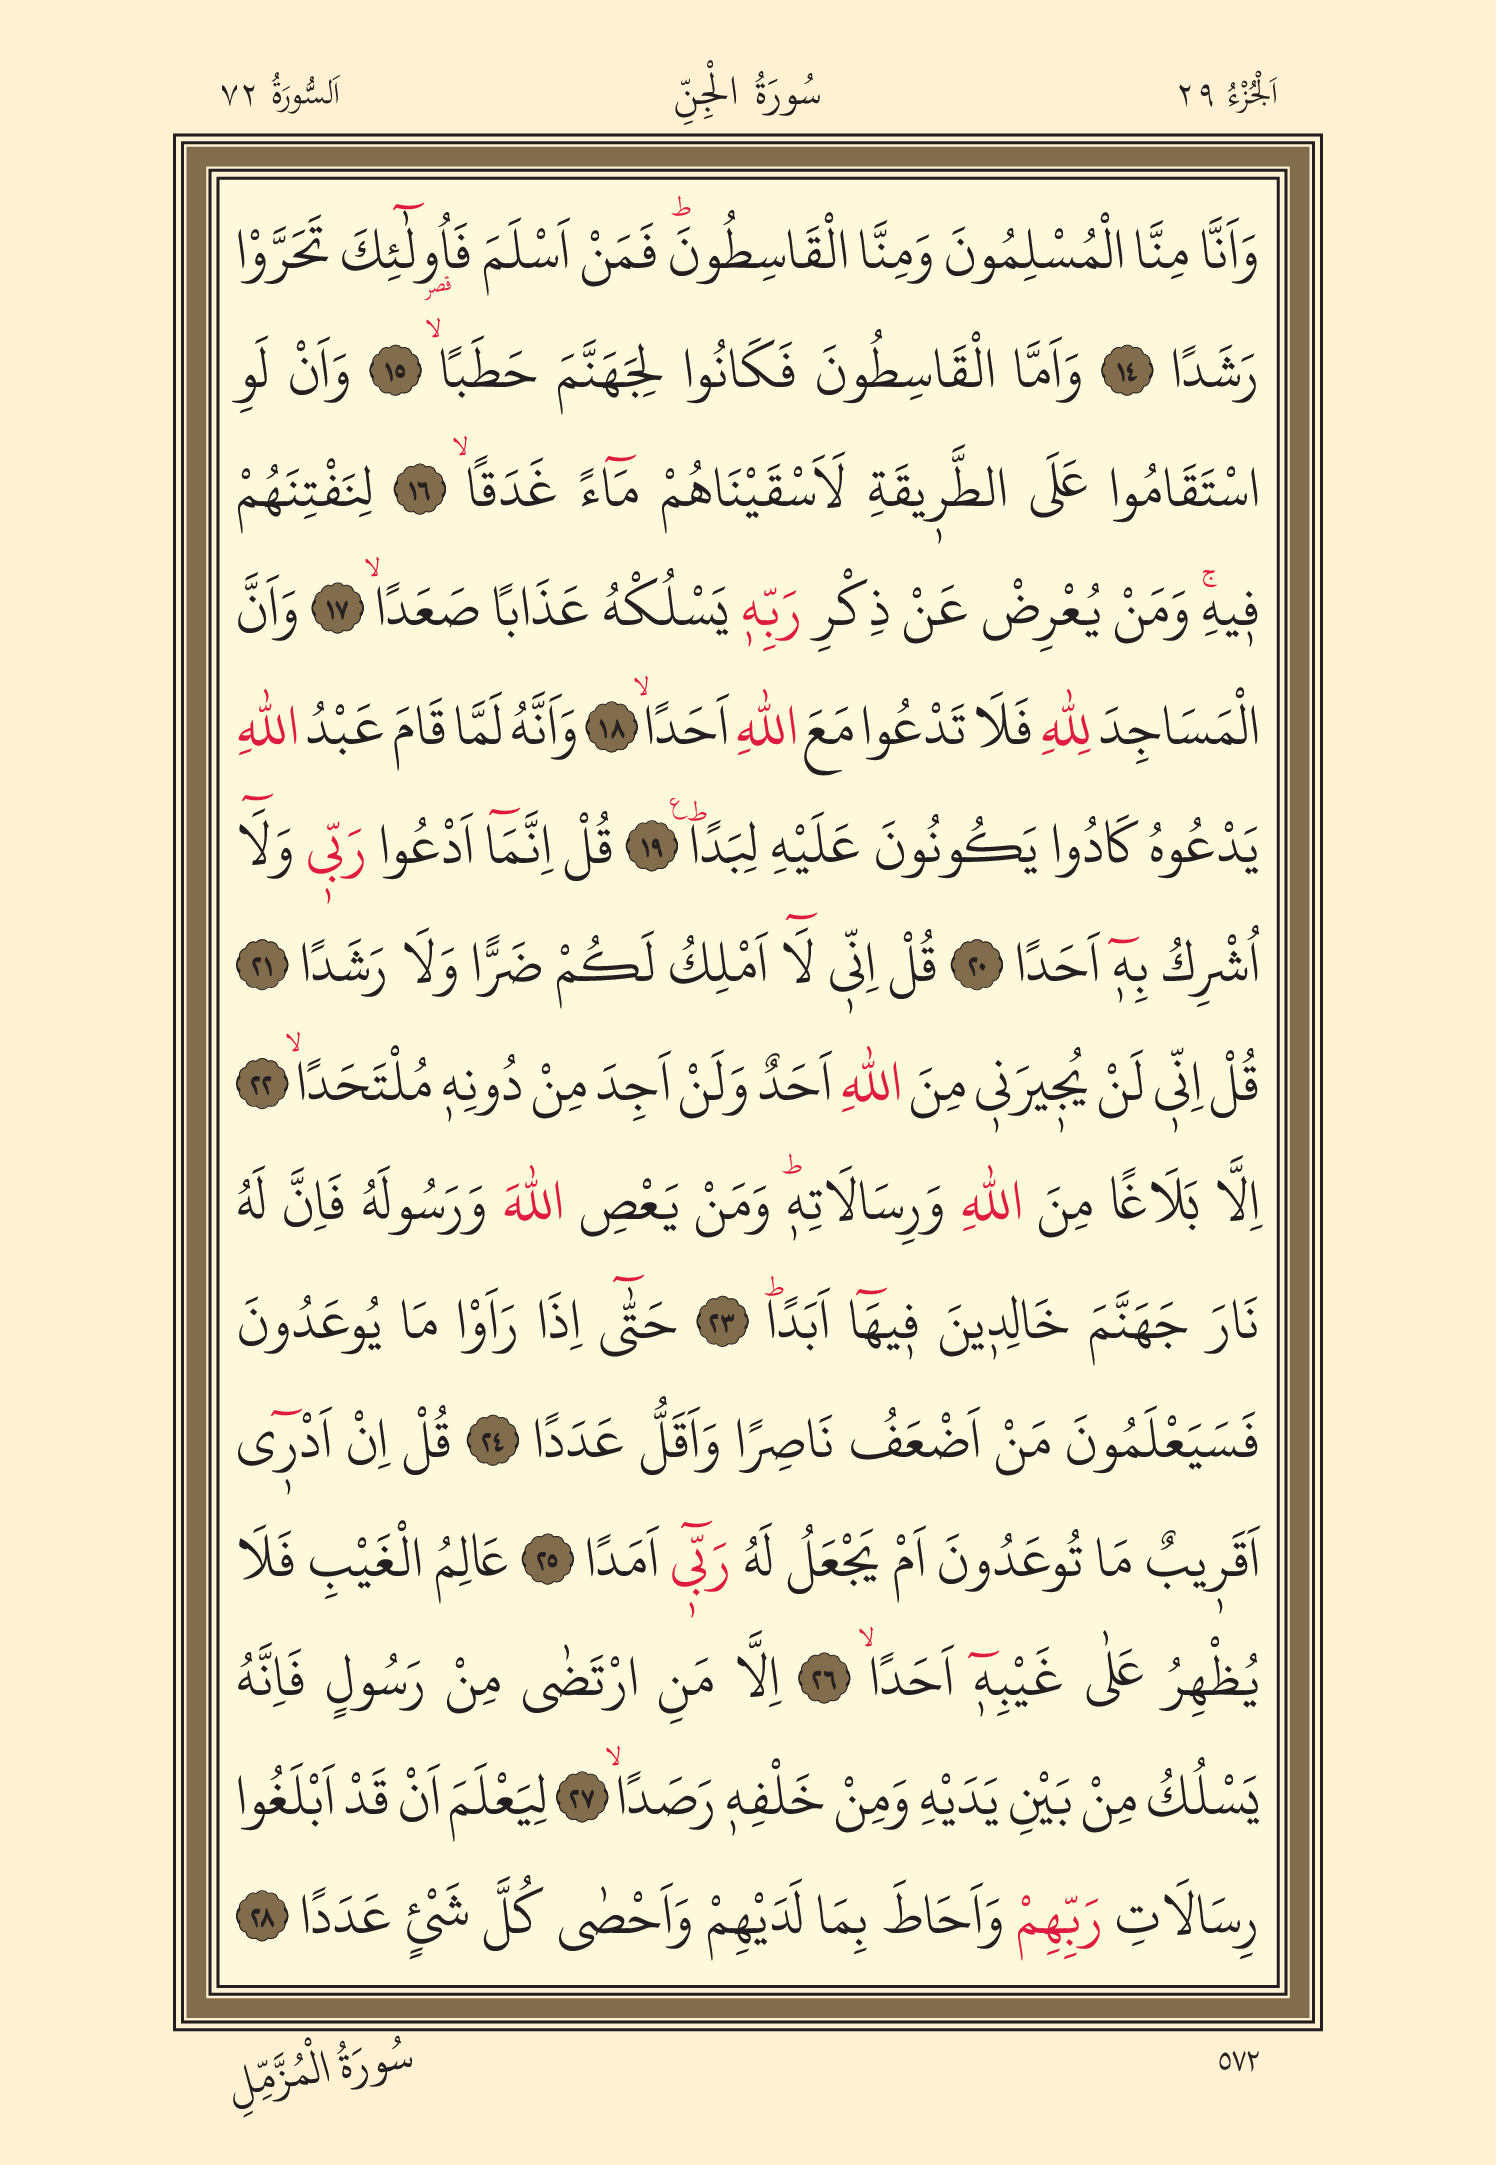 اَلْجُزْءُ ٢٩
سُورَةُ الْجِنِّ
اَلسُّورَةُ ٧٢
وَاَنَّا مِنَّا الْمُسْلِمُونَ وَمِنَّا الْقَاسِطُونَۜ فَمَنْ اَسْلَمَ فَاُو۬لٰٓئِكَ تَحَرَّوْا
رَشَدًا ﴿١٤﴾ وَاَمَّا الْقَاسِطُونَ فَكَانُوا لِجَهَنَّمَ حَطَبًاۙ ﴿١٥﴾ وَاَنْ لَوِ
اسْتَقَامُوا عَلَى الطَّر۪يقَةِ لَاَسْقَيْنَاهُمْ مَٓاءً غَدَقًاۙ ﴿١٦﴾ لِنَفْتِنَهُمْ
ف۪يهِۚ وَمَنْ يُعْرِضْ عَنْ ذِكْرِ رَبِّه۪ يَسْلُكْهُ عَذَابًا صَعَدًاۙ ﴿١٧﴾ وَاَنَّ
الْمَسَاجِدَ لِلّٰهِ فَلَا تَدْعُوا مَعَ اللّٰهِ اَحَدًاۙ ﴿١٨﴾ وَاَنَّهُ لَمَّا قَامَ عَبْدُ اللّٰهِ
يَدْعُوهُ كَادُوا يَكُونُونَ عَلَيْهِ لِبَدًاۜ ع ﴿١٩﴾ قُلْ اِنَّمَٓا اَدْعُوا رَبّ۪ي وَلَٓا
اُشْرِكُ بِه۪ٓ اَحَدًا ﴿٢٠﴾ قُلْ اِنّ۪ي لَٓا اَمْلِكُ لَكُمْ ضَرًّا وَلَا رَشَدًا ﴿٢١﴾
قُلْ اِنّ۪ي لَنْ يُج۪يرَن۪ي مِنَ اللّٰهِ اَحَدٌ وَلَنْ اَجِدَ مِنْ دُونِه۪ مُلْتَحَدًاۙ ﴿٢٢﴾
اِلَّا بَلَاغًا مِنَ اللّٰهِ وَرِسَالَاتِه۪ۜ وَمَنْ يَعْصِ اللّٰهَ وَرَسُولَهُ فَاِنَّ لَهُ
نَارَ جَهَنَّمَ خَالِد۪ينَ ف۪يهَٓا اَبَدًاۜ ﴿٢٣﴾ حَتّٰٓى اِذَا رَاَوْا مَا يُوعَدُونَ
فَسَيَعْلَمُونَ مَنْ اَضْعَفُ نَاصِرًا وَاَقَلُّ عَدَدًا ﴿٢٤﴾ قُلْ اِنْ اَدْر۪ٓى
اَقَر۪يبٌ مَا تُوعَدُونَ اَمْ يَجْعَلُ لَهُ رَبّ۪ٓي اَمَدًا ﴿٢٥﴾ عَالِمُ الْغَيْبِ فَلَا
يُظْهِرُ عَلٰى غَيْبِه۪ٓ اَحَدًاۙ ﴿٢٦﴾ اِلَّا مَنِ ارْتَضٰى مِنْ رَسُولٍ فَاِنَّهُ
يَسْلُكُ مِنْ بَيْنِ يَدَيْهِ وَمِنْ خَلْفِه۪ رَصَدًاۙ ﴿٢٧﴾ لِيَعْلَمَ اَنْ قَدْ اَبْلَغُوا
رِسَالَاتِ رَبِّهِمْ وَاَحَاطَ بِمَا لَدَيْهِمْ وَاَحْصٰى كُلَّ شَيْئٍ عَدَدًا ﴿٢٨﴾
٥٧٢
سُورَةُ الْمُزَّمِّلِ